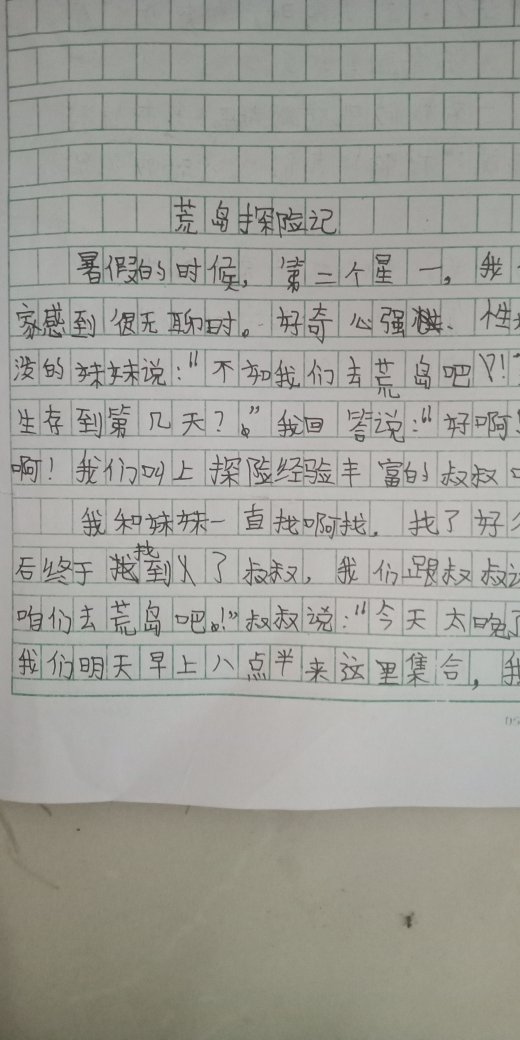 荒岛探险记
暑假的时候，第三个星一。我
家感到很无聊时。好奇心强、性
没的妹妹说：“不如我们去荒岛吧！
生存到第几天？”我回答说：“好啊！
啊！我们叫上探险经验丰富的叔叔
我和妹妹一直找啊找，找了好
后终于找到了叔叔，我们跟叔叔
咱们去荒岛吧！”叔叔说：“今天太晚了
我们明天早上八点半来这里集合，我